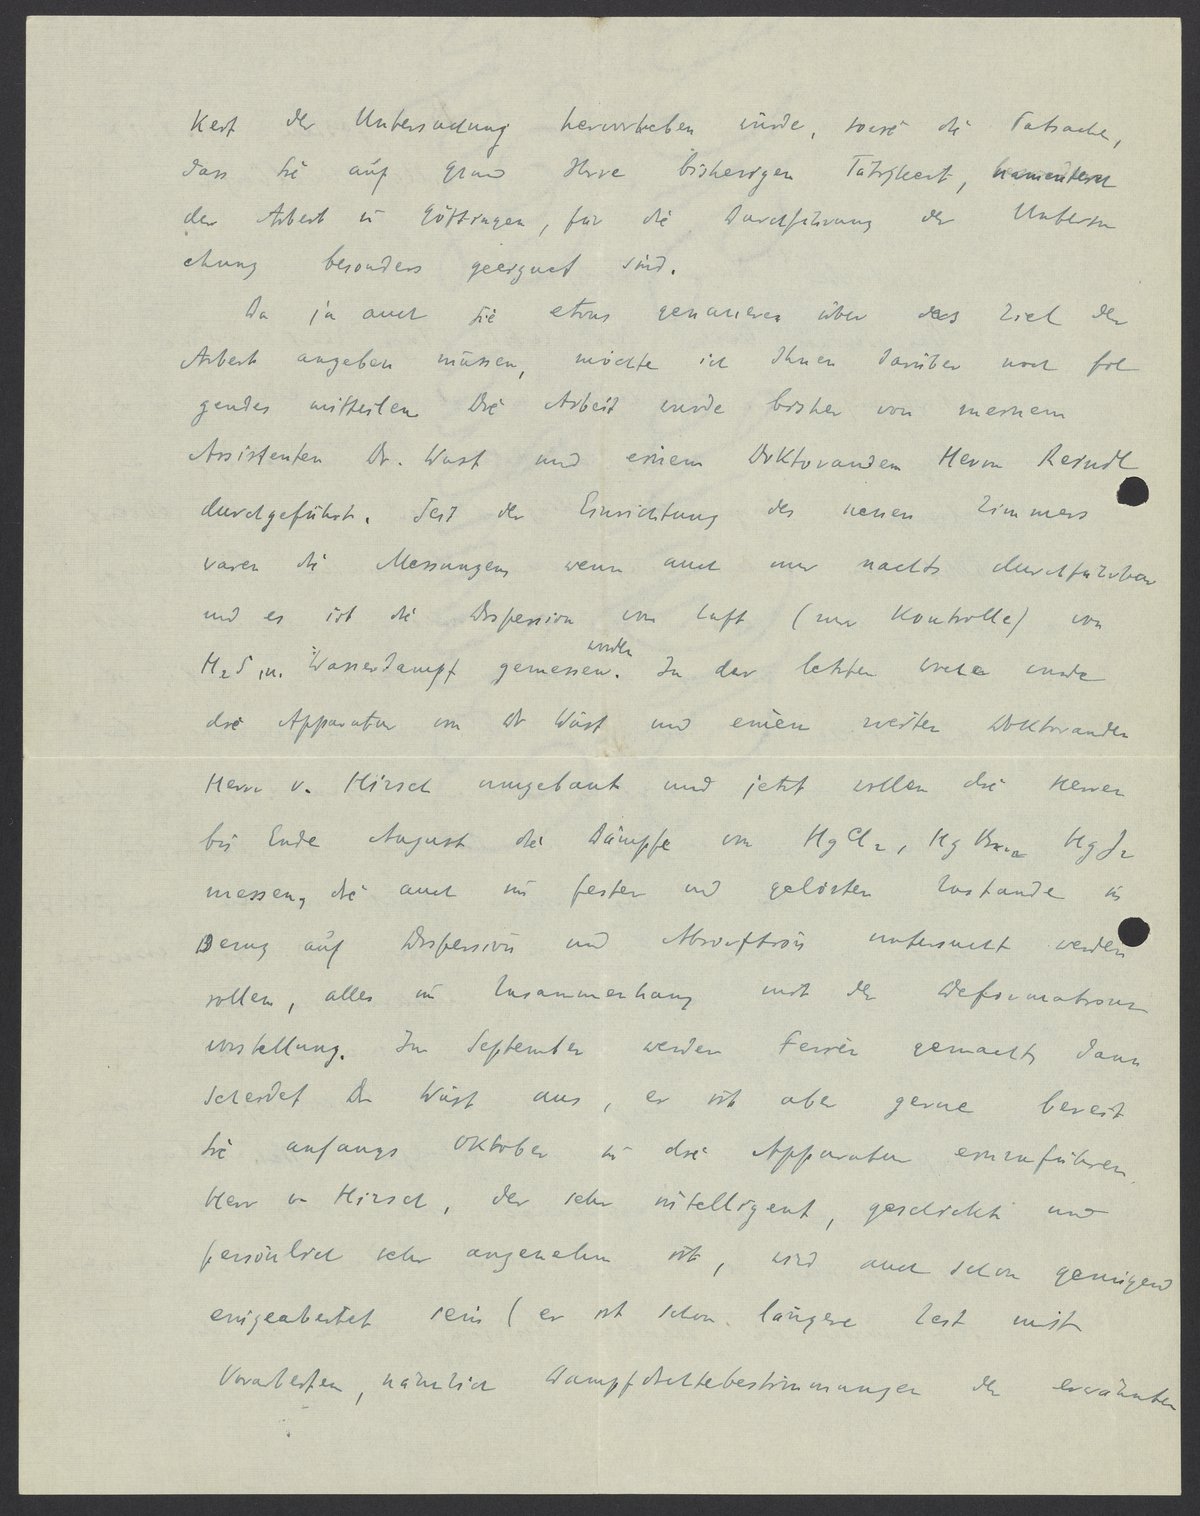 keit der Untersuchung hervorheben würde, sowie die Tatsache,
dass Sie auf Grund Ihrer bisherigen Tätigkeit, namentlich
der Arbeit in Göttingen, für die Durchführung der Untersu
chung besonders geeignet sind.
Da ja auch Sie etwas genaueres über das Ziel der
Arbeit angeben müssen, möchte ich Ihnen darüber noch fol
gendes mitteilen. Die Arbeit wurde bisher von meinem
Assistenten Dr. Wüst und einem Doktoranden Herrn Reindl
durchgeführt. Seit der Einrichtung des neuen Zimmers
waren die Messungen, wenn auch nur nachts durchführbar
und es ist die Dispersion von Luft (zur Kontrolle) von
H2S u. Wasserdampf gemessen worden. In der letzten Woche wurde
die Apparatur von Dr Wüst und einem zweiten Doktoranden
Herrn v. Hirsch umgebaut und jetzt wollen die Herren
bis Ende August die Dämpfe von HgCl2, HgBr2 HgJ2
messen, die auch im festen und gelösten Zustande in
Bezug auf Dispersion und Absorption untersucht werden
sollen, alles im Zusammenhang mit der Deformations
vorstellung. Im September werden Ferien gemacht, dann
scheidet Dr Wüst aus, er ist aber gerne bereit
Sie anfangs Oktober in die Apparatur einzuführen.
Herr v Hirsch, der sehr intelligent, geschickt und
persönlich sehr angenehm ist, wird auch schon genügend
eingearbeitet sein (er ist schon längere Zeit mit
Vorarbeiten, nämlich Dampfdichtebestimmungen der erwähnten